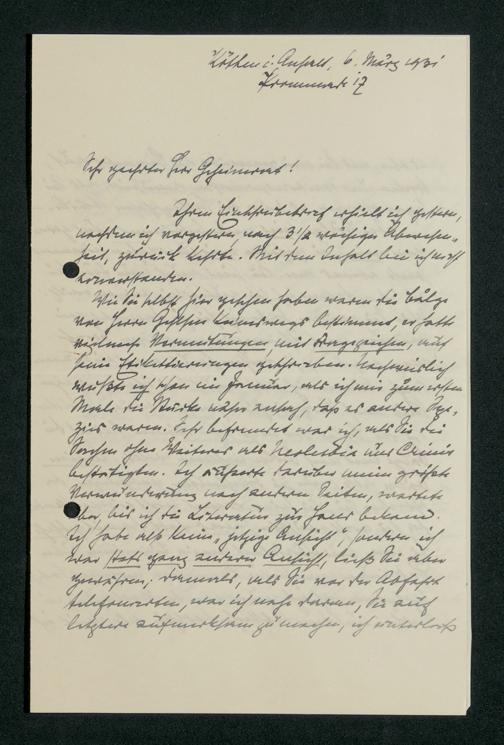 Köthen i. Anhalt, 6. März 1931
Promenade 17
Sehr geehrter Herr Geheimrat!
Ihren Einschreibebrief erhielt ich gestern,
nachdem ich vorgestern nach 3 1/2 wöchiger Abwesen-
heit, zurück kehrte. Mit dem Inhalt bin ich nicht
einverstanden.
Wie Sie selbst hier gesehen haben waren die Bälge
von Herrn keineswegs bestimmt, er hatte
vielmehr Vermutungen, mit Fragezeichen, auf
seine Etikettierungen geschrieben. Nachweislich
wußte ich schon im Januar, als ich mir zum ersten
Male die Stücke näher ansah, daß es andere Spe-
zies waren. Sehr befremdet war ich, als Sie die
Sachen ohne Weiteres als
bestätigten. Ich äußerte darüber meine größte
Verwunderung nach anderen Seiten, wartete
aber, bis ich die Literatur zur Hand bekam.
Ich habe also keine "jetzige Ansicht", sondern ich
war stets ganz anderer Ansicht, ließ Sie aber
gewähren. Damals, als Sie vor der Abfahrt
telefonierten, war ich nahe daran, Sie auf
letztere aufmerksam zu machen, ich unterließ